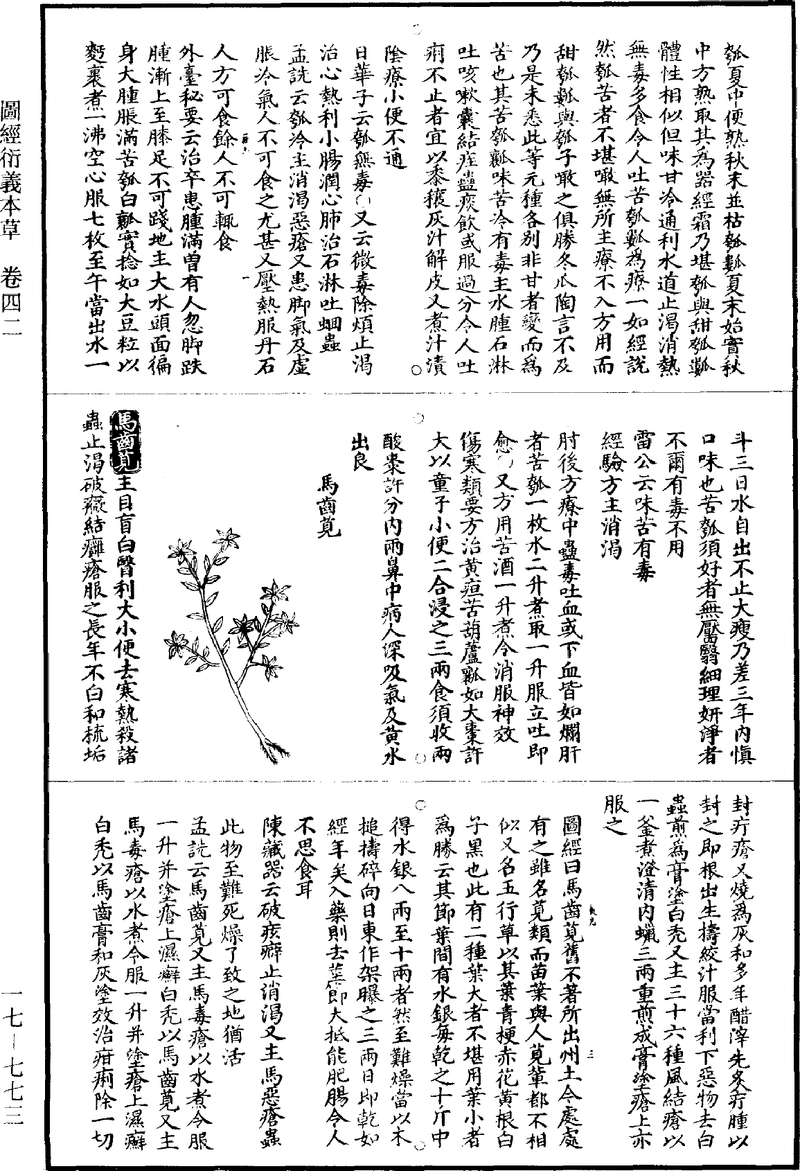 圖經衍義本草　卷四二
瓠夏中便熟秋末並枯瓠㼐夏末始實秋
中方熟取其為器經霜乃堪瓠與甜瓠㼐
體性相似但味甘冷通利水道止渴消熱
無毒多食令人吐苦瓠㼐為療一如經說
然瓠苦者不堪噉無所主療不入方用而
甜瓠㼐與瓠子噉之俱勝冬瓜陶言不及
乃是未悉此等元種各別非甘者變而為
苦也其苦瓠瓤味苦冷有毒主水腫石淋
吐咳嗽囊結疰蠱痰飲或服過分令人吐
痢不止者宜以黍穰灰汁解皮又煮汁漬
陰療小便不通
日華子云瓠無毒又云微毒除煩止渴
治心熱利小腸潤心肺治石淋吐蛔蟲
孟詵云瓠冷主消渴惡瘡又患脚氣及虛
脹冷氣人不可食之尤甚又壓熱服丹石
人方可食餘人不可輒食
外臺秘要云治卒患腫滿曾有人忽脚趺
腫漸上至膝足不可踐地主大水頭面徧
身大腫脹滿苦瓠白瓤實捻如大豆粒以
麪裹煮一沸空心服七枚至午當出水一
斗三日水自出不止大瘦乃差三年內慎
口味也苦瓠須好者無靨翳細理妍淨者
不爾有毒不用
雷公云味苦有毒
經驗方主消渴
肘後方療中蠱毒吐血或下血皆如爛肝
者苦瓠一枚水二升煮取一升服立吐即
愈又方用苦酒一升煮令消服神效
傷寒類要方治黃疸苦葫蘆瓤如大棗許
大以童子小便二合浸之三兩食須收兩
酸棗許分內兩鼻中病人深吸氣及黃水
出良
馬齒莧
馬齒莧主目盲白瞖利大小便去寒熱殺諸
蟲止渴破癥結癰瘡服之長年不白和梳垢
封疔瘡又燒為灰和多年醋滓先炙疔腫以
封之即根出生擣絞汁服當利下惡物去白
蟲煎為膏塗白禿又主三十六種風結瘡以
一釜煮澄清內蠟三兩重煎成膏塗瘡上亦
服之
圖經曰馬齒莧舊不著所出州土今處處
有之雖名莧類而苗葉與人莧軰都不相
似又名五行草以其葉青梗赤花黃根白
子黑也此有二種葉大者不堪用葉小者
為勝云其節葉間有水銀每乾之十斤中
得水銀八兩至十兩者然至難燥當以木
搥擣碎向日東作架曝之三兩日即乾如
經年矣入藥則去莖節大抵能肥腸令人
不思食耳
陳藏器云破痃癖止消渴又主馬惡瘡蟲
此物至難死燥了致之地猶活
孟詵云馬齒莧又主馬毒瘡以水煮令服
一升并塗瘡上濕癬白禿以馬齒莧又主
馬毒瘡以水煮令服一升并塗瘡上濕癬
白禿以馬齒膏和灰塗效治疳痢除一切
一七—七七三